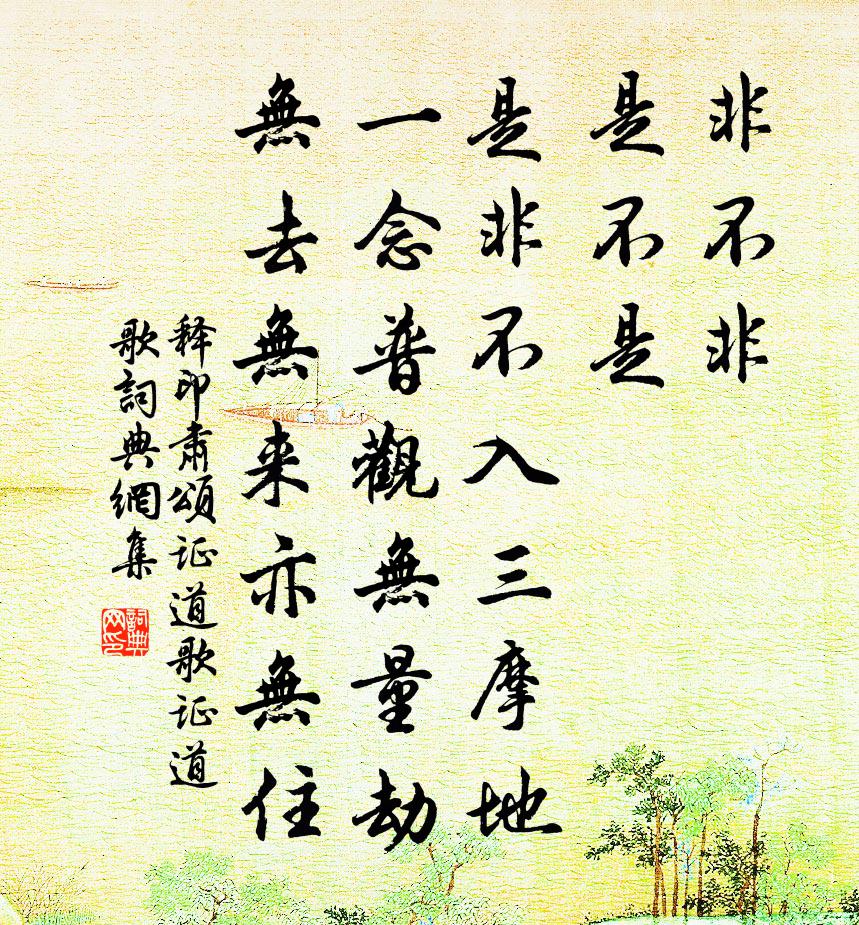 非不非
是不是
是非不入三摩地
一念普觀無量劫
無去無来亦無住
释印肃頌证道歌证道
歌詞典網集
詞典網印